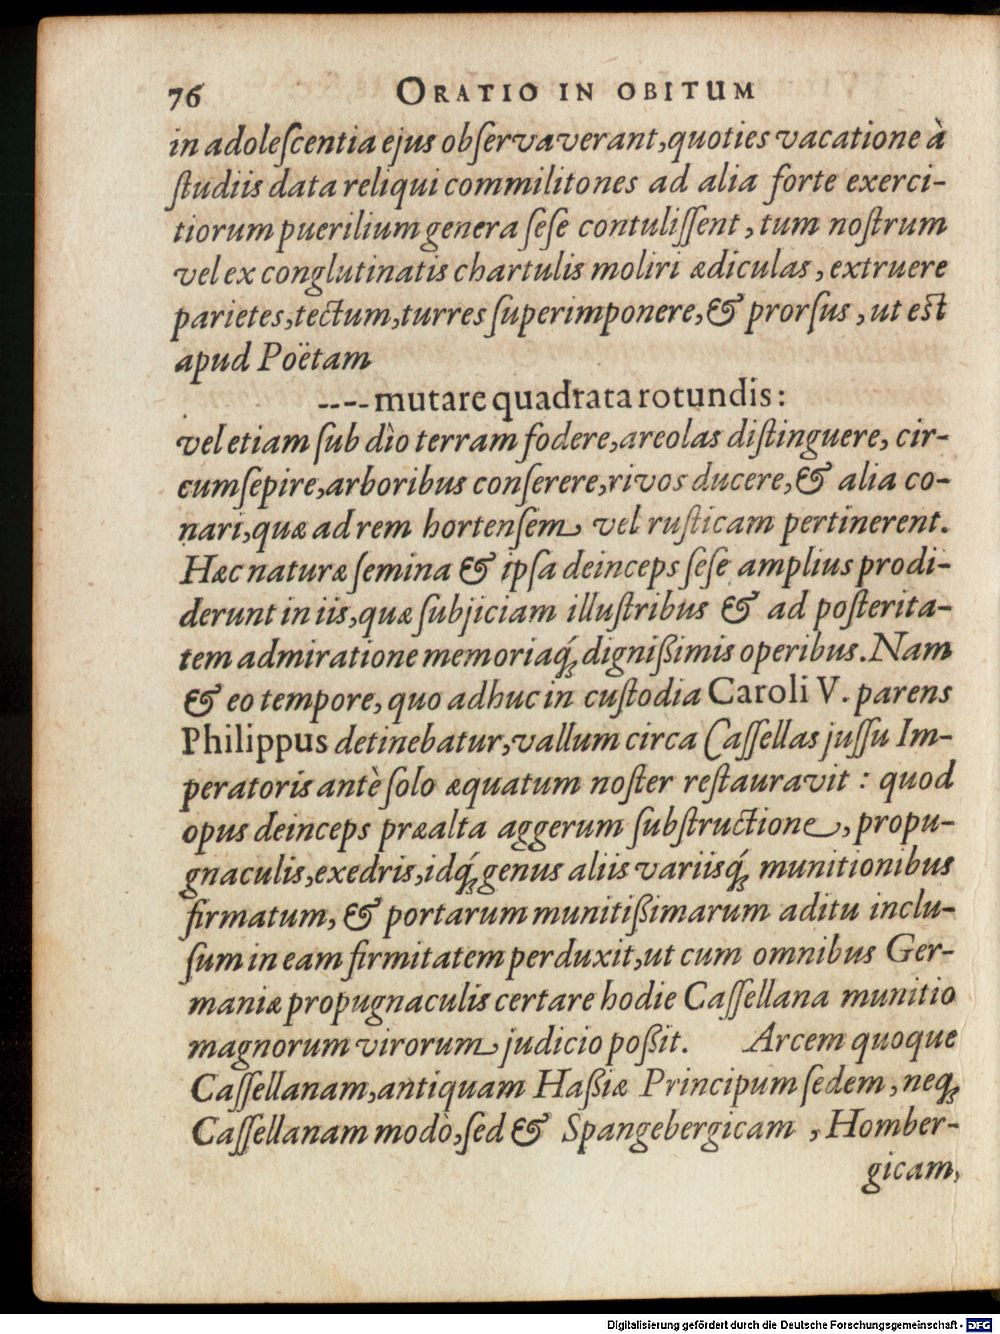 76 ORATIO IN OBITUM
in adoleſcentia ejus obſervaverant, quoties vacatione à
ſtudiis data reliqui commilitones ad alia forte exerci-
tiorum puerilium genera ſeſe contuliſſent, tum noſtrum
vel ex conglutinatis chartulis moliri ædiculas, extruere
parietes, tectum, turres ſuperimponere, & prorſus, ut eſt
apud Poëtam
---- mutare quadrata rotundis:
vel etiam ſub dìo terram fodere, areolas diſtinguere, cir-
cumſepire, arboribus conſerere, rivos ducere, & alia co-
nari, quæ ad rem hortenſem vel ruſticam pertinerent.
Hæc naturæ ſemina & ipſa deinceps ſeſe amplius prodi-
derunt in iis, quæ ſubjiciam illuſtribus & ad poſterita-
tem admiratione memoriaq́; dignißimis operibus. Nam
& eo tempore, quo adhuc in cuſtodia Caroli V. parens
Philippus detinebatur, vallum circa Caſſellas juſſu Im-
peratoris antè ſolo æquatum noſter reſtauravit : quod
opus deinceps præalta aggerum ſubſtructione, propu-
gnaculis, exedris, idq́; genus aliis variisq́; munitionibus
firmatum, & portarum munitißimarum aditu inclu-
ſum in eam firmitatem perduxit, ut cum omnibus Ger-
maniæ propugnaculis certare hodie Caſſellana munitio
magnorum virorum judicio poßit. Arcem quoque
Caſſellanam, antiquam Haßiæ Principum ſedem, neq;
Caſſellanam modò, ſed & Spangebergicam, Homber-
gicam,
Digitalisierung gefördert durch die Deutsche Forschungsgemeinschaft - DFG